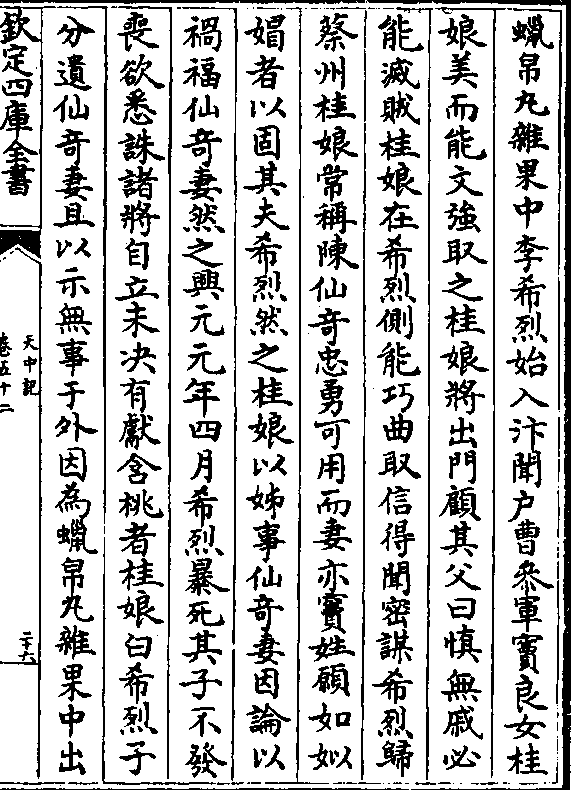 蠟帛丸雜果中李希烈始入汴聞户曹叅軍竇良女桂
娘美而能文強取之桂娘將出門顧其父曰慎無戚必
能滅賊桂娘在希烈側能巧曲取信得聞密謀希烈歸
蔡州桂娘常稱陳仙竒忠勇可用而妻亦竇姓願如姒
娼者以固其夫希烈然之桂娘以姊事仙竒妻因論以
禍福仙竒妻然之興元元年四月希烈暴死其子不發
喪欲悉誅諸將自立未决有獻含桃者桂娘白希烈子
分遺仙竒妻且以示無事于外因為蠟帛丸雜果中出
欽定四庫全書
天中記
卷五十二
二十六